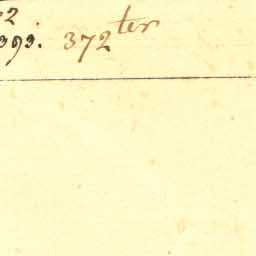 2
393. 372 ter